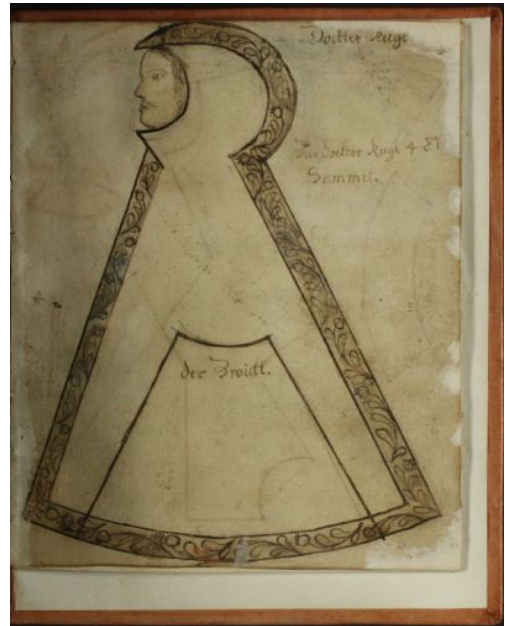 Dockter Kugl
Zur Dockter Kugl 4 El
Sammit.
der Zwickl.